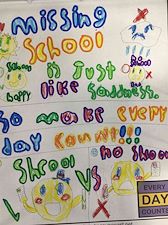 missing
School
School is just School
happy like saddness. Sad
so make every
day count!!!
School no school
VS
EVERY
DAY
COUNTS